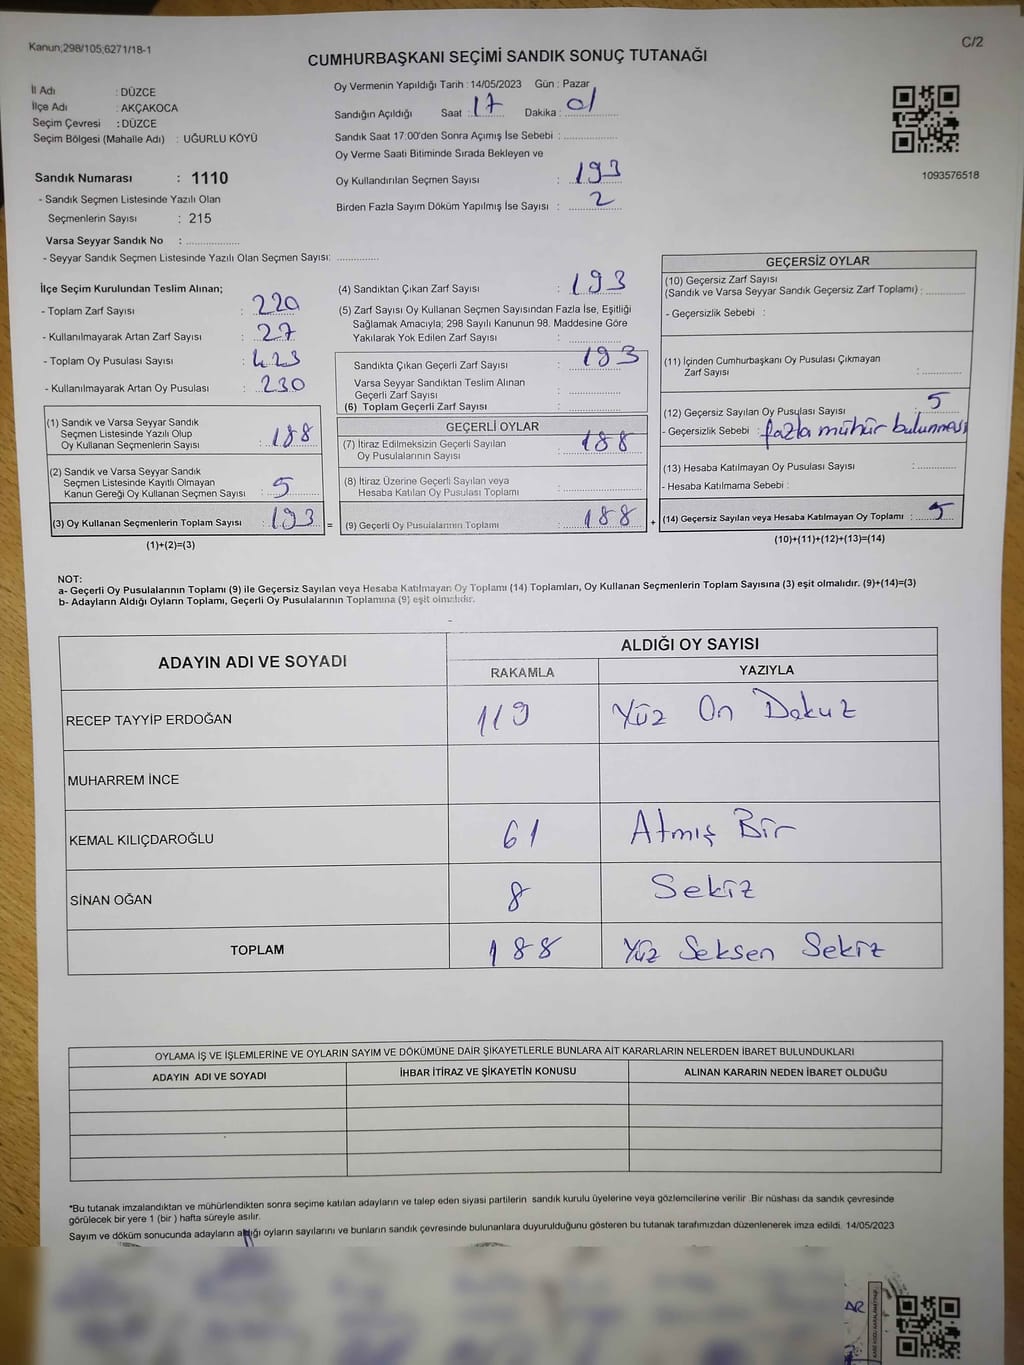 Kanun;298/105;6271/18-1
C/2
CUMHURBAŞKANI SEÇİMİ SANDIK SONUÇ TUTANAĞI
İl Adı : DÜZCE
İlçe Adı : AKÇAKOCA
Seçim Çevresi : DÜZCE
Seçim Bölgesi (Mahalle Adı) : UĞURLU KÖYÜ
Sandık Numarası : 1110
- Sandık Seçmen Listesinde Yazılı Olan
Seçmenlerin Sayısı : 215
Varsa Seyyar Sandık No : ..................
- Seyyar Sandık Seçmen Listesinde Yazılı Olan Seçmen Sayısı: ..............
Oy Vermenin Yapıldığı Tarih : 14/05/2023 Gün : Pazar
Sandığın Açıldığı Saat : 17 Dakika : 01
Sandık Saat 17:00'den Sonra Açımış İse Sebebi : ..................
Oy Verme Saati Bitiminde Sırada Bekleyen ve
Oy Kullandırılan Seçmen Sayısı : 193
Birden Fazla Sayım Döküm Yapılmış İse Sayısı : 2
1093576518
İlçe Seçim Kurulundan Teslim Alınan;
- Toplam Zarf Sayısı : 220
- Kullanılmayarak Artan Zarf Sayısı : 27
- Toplam Oy Pusulası Sayısı : 423
- Kullanılmayarak Artan Oy Pusulası : 230
(1) Sandık ve Varsa Seyyar Sandık
Seçmen Listesinde Yazılı Olup
Oy Kullanan Seçmenlerin Sayısı : 188
(2) Sandık ve Varsa Seyyar Sandık
Seçmen Listesinde Kayıtlı Olmayan
Kanun Gereği Oy Kullanan Seçmen Sayısı : 5
(3) Oy Kullanan Seçmenlerin Toplam Sayısı : 193 =
(1)+(2)=(3)
(4) Sandıktan Çıkan Zarf Sayısı : 193
(5) Zarf Sayısı Oy Kullanan Seçmen Sayısından Fazla İse, Eşitliği
Sağlamak Amacıyla; 298 Sayılı Kanunun 98. Maddesine Göre
Yakılarak Yok Edilen Zarf Sayısı : ..................
Sandıkta Çıkan Geçerli Zarf Sayısı : 193
Varsa Seyyar Sandıktan Teslim Alınan
Geçerli Zarf Sayısı : ..................
(6) Toplam Geçerli Zarf Sayısı : ..................
GEÇERLİ OYLAR
(7) İtiraz Edilmeksizin Geçerli Sayılan
Oy Pusulalarının Sayısı : 188
(8) İtiraz Üzerine Geçerli Sayılan veya
Hesaba Katılan Oy Pusulası Toplamı : ..................
(9) Geçerli Oy Pusulalarının Toplamı : 188 +
GEÇERSİZ OYLAR
(10) Geçersiz Zarf Sayısı
(Sandık ve Varsa Seyyar Sandık Geçersiz Zarf Toplamı) : .............
- Geçersizlik Sebebi :
(11) İçinden Cumhurbaşkanı Oy Pusulası Çıkmayan
Zarf Sayısı : .............
(12) Geçersiz Sayılan Oy Pusulası Sayısı : 5
- Geçersizlik Sebebi : fazla mühür bulunması
(13) Hesaba Katılmayan Oy Pusulası Sayısı : .............
- Hesaba Katılmama Sebebi :
(14) Geçersiz Sayılan veya Hesaba Katılmayan Oy Toplamı : 5
(10)+(11)+(12)+(13)=(14)
NOT:
a- Geçerli Oy Pusulalarının Toplamı (9) ile Geçersiz Sayılan veya Hesaba Katılmayan Oy Toplamı (14) Toplamları, Oy Kullanan Seçmenlerin Toplam Sayısına (3) eşit olmalıdır. (9)+(14)=(3)
b- Adayların Aldığı Oyların Toplamı, Geçerli Oy Pusulalarının Toplamına (9) eşit olmalıdır.
ADAYIN ADI VE SOYADI
ALDIĞI OY SAYISI
RAKAMLA YAZIYLA
RECEP TAYYİP ERDOĞAN 119 Yüz On Dokuz
MUHARREM İNCE
KEMAL KILIÇDAROĞLU 61 Atmış Bir
SİNAN OĞAN 8 Sekiz
TOPLAM 188 Yüz Seksen Sekiz
OYLAMA İŞ VE İŞLEMLERİNE VE OYLARIN SAYIM VE DÖKÜMÜNE DAİR ŞİKAYETLERLE BUNLARA AİT KARARLARIN NELERDEN İBARET BULUNDUKLARI
ADAYIN ADI VE SOYADI İHBAR İTİRAZ VE ŞİKAYETİN KONUSU ALINAN KARARIN NEDEN İBARET OLDUĞU
*Bu tutanak imzalandıktan ve mühürlendikten sonra seçime katılan adayların ve talep eden siyasi partilerin sandık kurulu üyelerine veya gözlemcilerine verilir .Bir nüshası da sandık çevresinde
görülecek bir yere 1 (bir ) hafta süreyle asılır.
Sayım ve döküm sonucunda adayların aldığı oyların sayılarını ve bunların sandık çevresinde bulunanlara duyurulduğunu gösteren bu tutanak tarafımızdan düzenlenerek imza edildi. 14/05/2023
AR